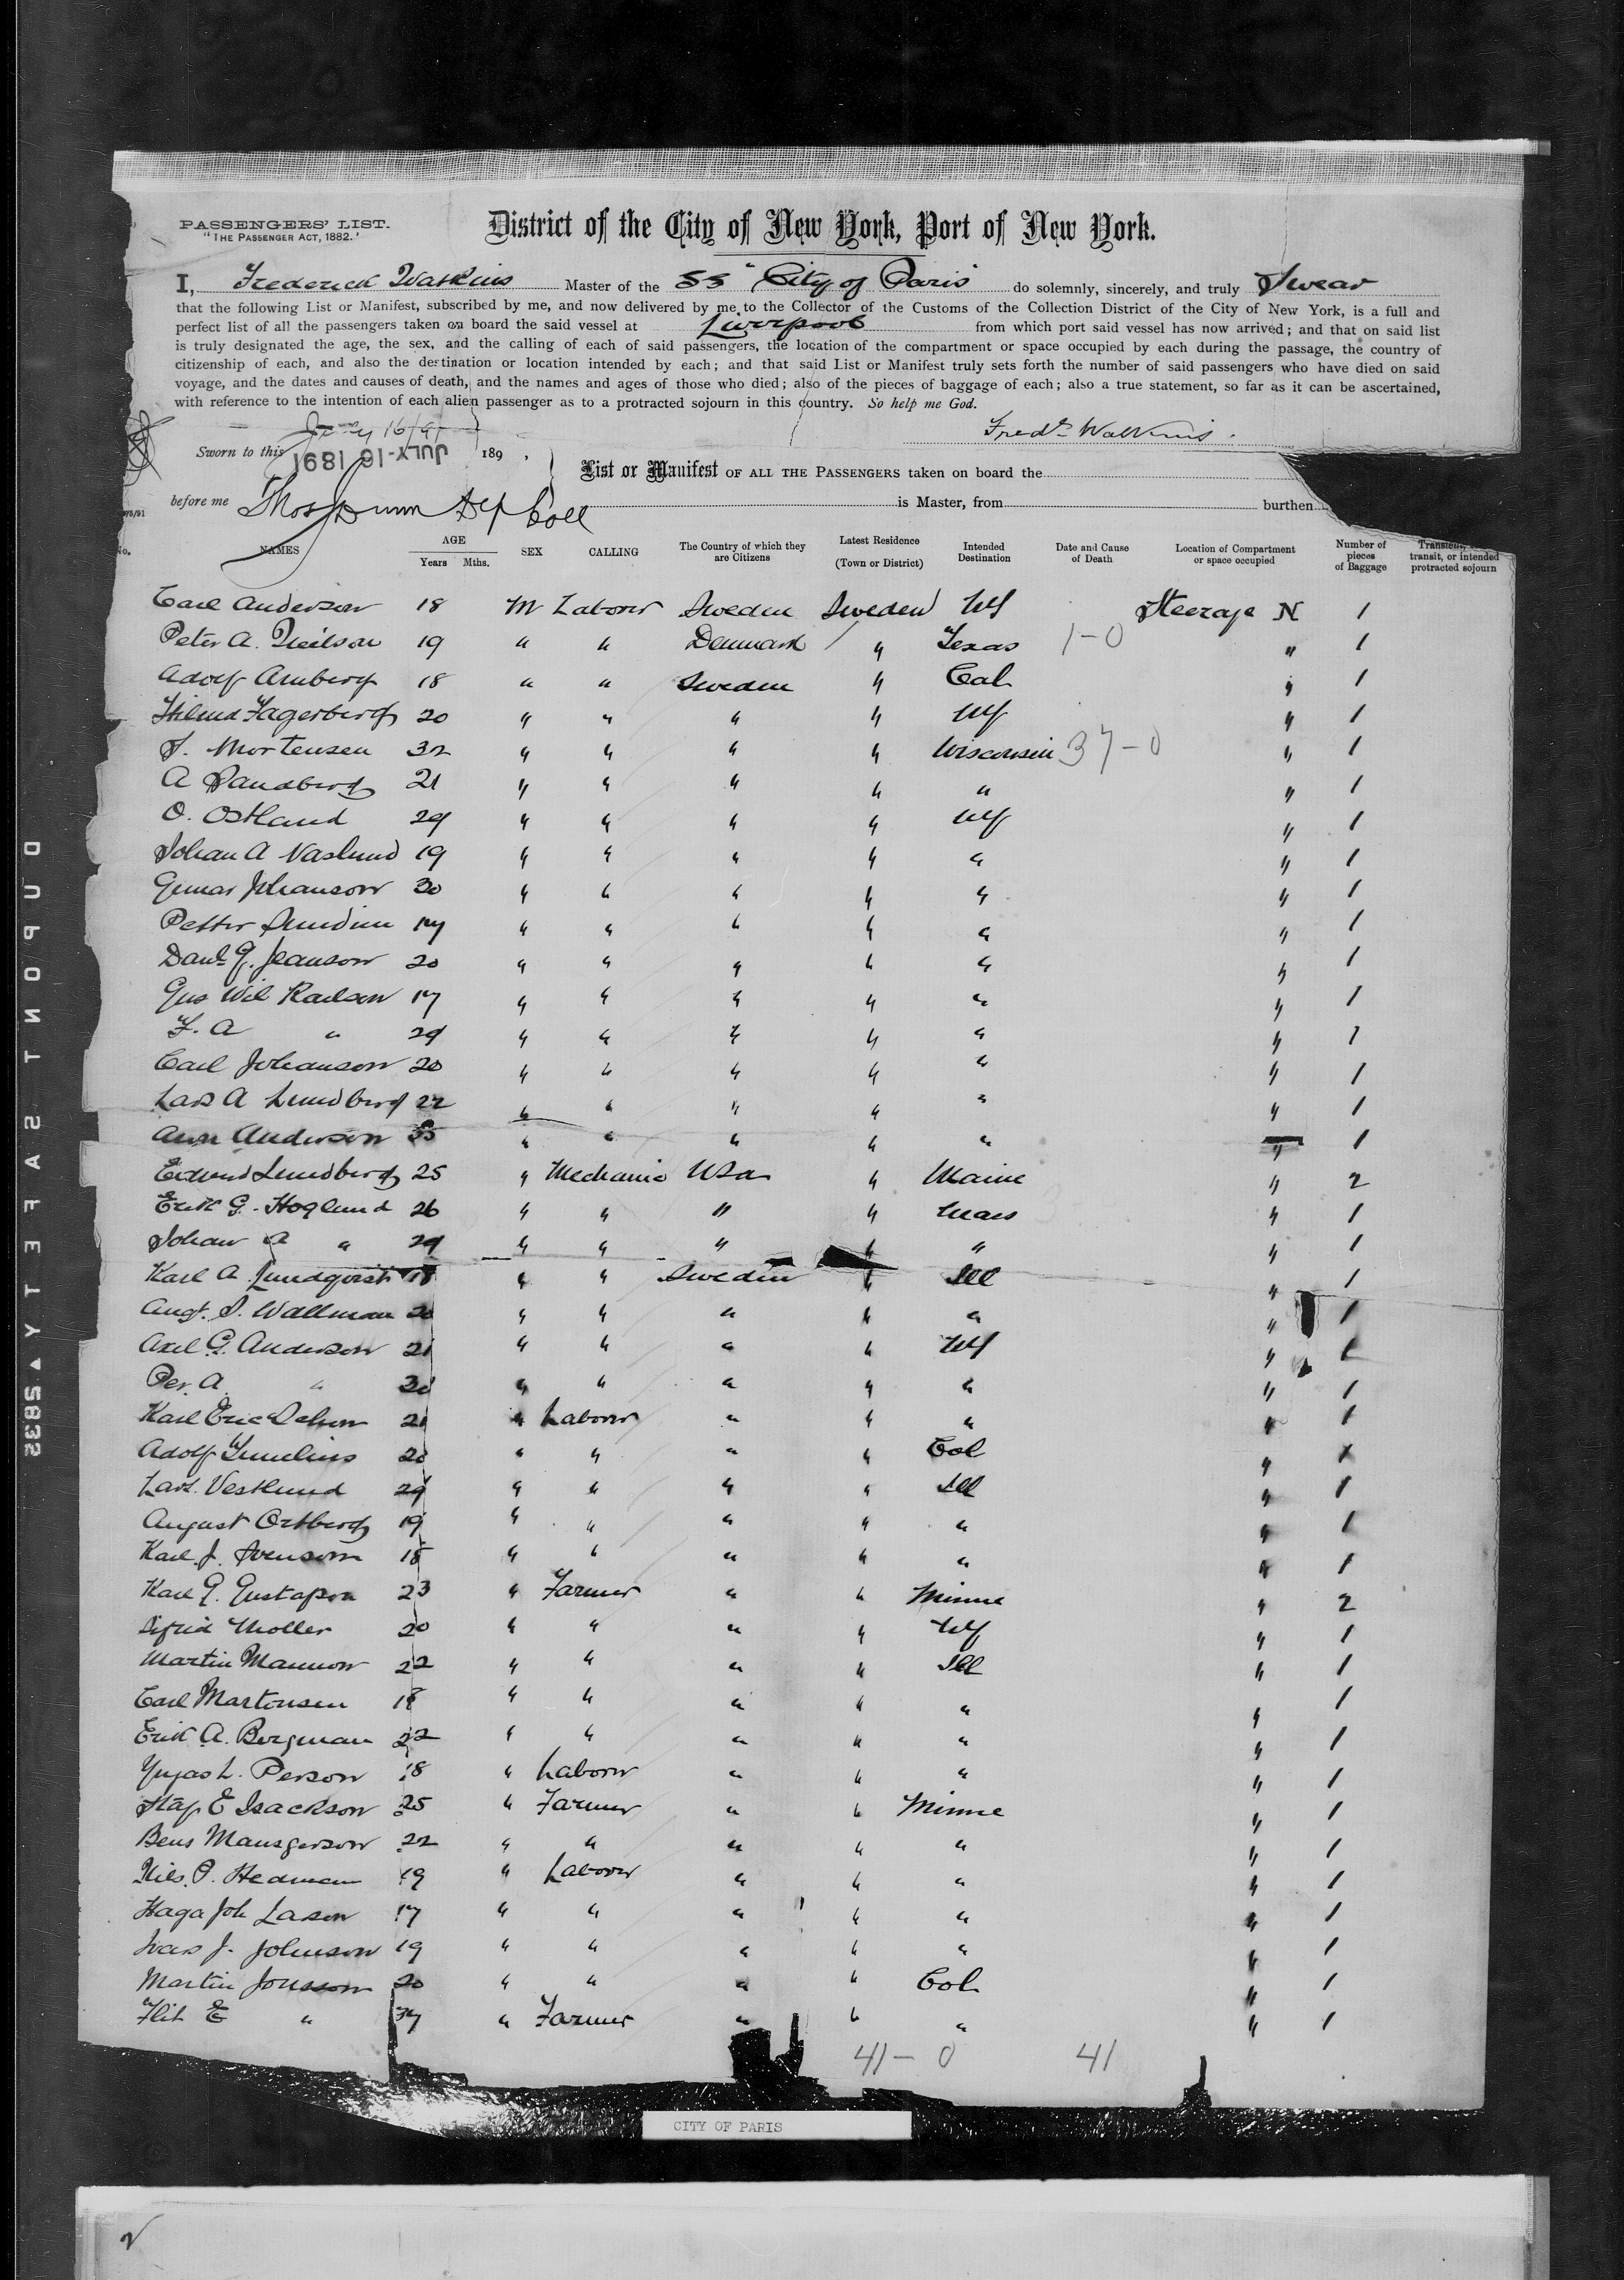 PASSENGERS' LIST.
"THE PASSENGER ACT, 1882."
District of the City of New York, Port of New York.
I, Frederick Watkins Master of the SS "City of Paris" do solemnly, sincerely, and truly Swear
that the following List or Manifest, subscribed by me, and now delivered by me to the Collector of the Customs of the Collection District of the City of New York, is a full and
perfect list of all the passengers taken on board the said vessel at Liverpool from which port said vessel has now arrived; and that on said list
is truly designated the age, the sex, and the calling of each of said passengers, the location of the compartment or space occupied by each during the passage, the country of
citizenship of each, and also the destination or location intended by each; and that said List or Manifest truly sets forth the number of said passengers who have died on said
voyage, and the dates and causes of death, and the names and ages of those who died; also of the pieces of baggage of each; also a true statement, so far as it can be ascertained,
with reference to the intention of each alien passenger as to a protracted sojourn in this country. So help me God.
July 16/91 Fredk Watkins.
Sworn to this JULY-16 1891 189 ,
List or Manifest OF ALL THE PASSENGERS taken on board the
before me Thos Dunn Dep Coll is Master, from burthen
No. NAMES AGE Years Mths. SEX CALLING The Country of which they are Citizens Latest Residence (Town or District) Intended Destination Date and Cause of Death Location of Compartment or space occupied Number of pieces of Baggage Transient, transit, or intended protracted sojourn
Carl Anderson 18 M Laborer Sweden Sweden NY Steerage N 1
Peter A. Neilson 19 " " Denmark " Texas 1-0 " 1
Adolf Arnberg 18 " " Sweden " Cal " 1
Fagerberg 20 " " " " NY " 1
J. Mortensen 32 " " " " Wisconsin 37-0 " 1
A Sandberg 21 " " " " " " 1
O. Ostland 29 " " " " NY " 1
Johan A Naslund 19 " " " " " " 1
Gunar Johanson 30 " " " " " " 1
Petter Sundin 17 " " " " " " 1
Danl G. Jeanson 20 " " " " " " 1
Gus Wil Kaelson 17 " " " " " " 1
F. A " 29 " " " " " " 1
Carl Johanson 20 " " " " " " 1
Lars A Lundberg 22 " " " " " " 1
Aron Anderson 35 " " " " " " 1
Edward Lundberg 25 " Mechanic USa " Maine " 2
Erik G. Hoglund 26 " " " " Mass " 1
Johan A " 29 " " " " " " 1
Karl A. Lundqvist 18 " " Sweden " Ill " 1
Augt. S. Wallman 20 " " " " " " 1
Axel G. Anderson 21 " " " " NY " 1
Per. A. " 30 " " " " " " 1
Karl Eric 21 " Laborer " " " " 1
Adolf 20 " " " " Col " 1
Lars. Vestlund 29 " " " " Ill " 1
August Ostberg 19 " " " " " " 1
Karl. J. Svenson 18 " " " " " " 1
Karl G. Gustafson 23 " Farmer " " Minne " 2
Sifrid Moller 20 " " " " NY " 1
Martin Mannow 22 " " " " Ill " 1
Carl Martensen 18 " " " " " " 1
Erik A. Bergman 22 " " " " " " 1
L. Person 18 " Laborer " " " " 1
E Isackson 25 " Farmer " " Minne " 1
Bens Mansgerson 22 " " " " " " 1
Nils. P. Hedman 19 " Laborer " " " " 1
Haga Joh Lason 17 " " " " " " 1
Ivars J. Johnson 19 " " " " " " 1
Martin Jonsson 20 " " " " Col " 1
E " 37 " Farmer " " " " 1
41 - 0 41
CITY OF PARIS
2
DUPONT SAFETY 5832